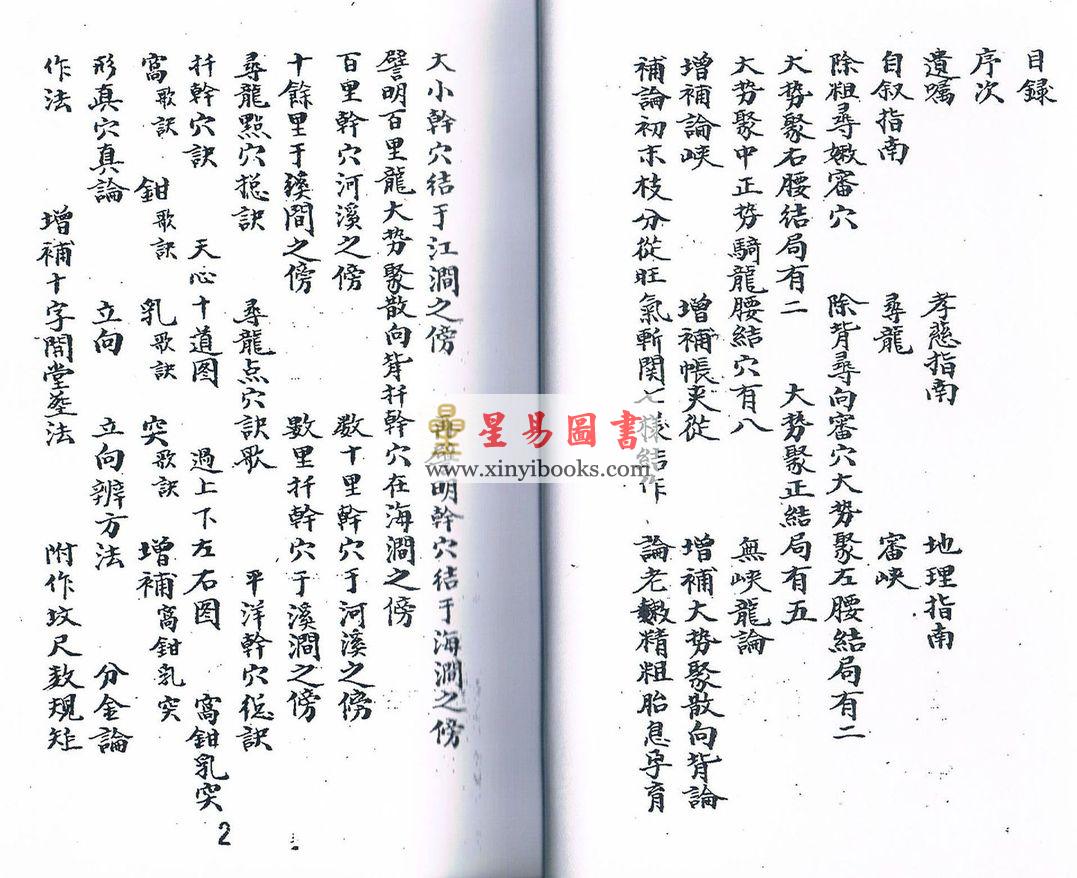 目録
序次
遺嘱 孝慈指南 地理指南
自叙指南 尋龍 審峽
除粗尋嫩審穴 除背尋向審穴大势聚左腰結局有二
大势聚右腰結局有二 大势聚正結局有五
大势聚中正势騎龍腰結穴有八 無峽龍論
增補論峽 增補帳夹從 增補大势聚散向背論
補論初末枝分從旺氣斬関七樣结作 論老嫩精粗胎息孕育
大小幹穴结于江澗之傍 再譬明幹穴结于海澗之傍
譬明百里龍大势聚散向背扦幹穴在海澗之傍
百里幹穴河溪之傍 数十里幹穴于河溪之傍
十餘里于溪澗之傍 數里扦幹穴于溪澗之傍
尋龍點穴捴訣 尋龍点穴訣歌 平洋幹穴捴訣
扦幹穴訣 天心十道图 過上下左右图 窩鉗乳突
窩歌訣 鉗歌訣 乳歌訣 突歌訣 增補窩鉗乳突
形真穴真論 立向 立向辨方法 分金論
作法 增補十字開堂塟法 附作坟尺数規矩
2
星易圖書
www.xinyibooks.com